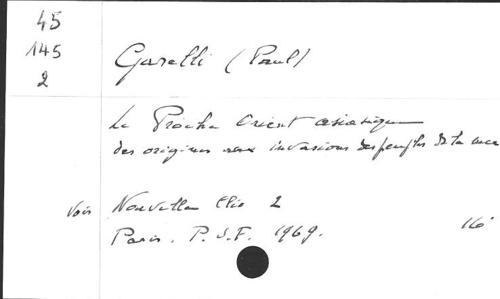 45
145
2
Garelli (Paul)
Le Proche Orient asiatique
des origines aux invasions des peuples de la mer
Voir Nouvelle Clio 2
Paris. P.U.F. 1969. 16°